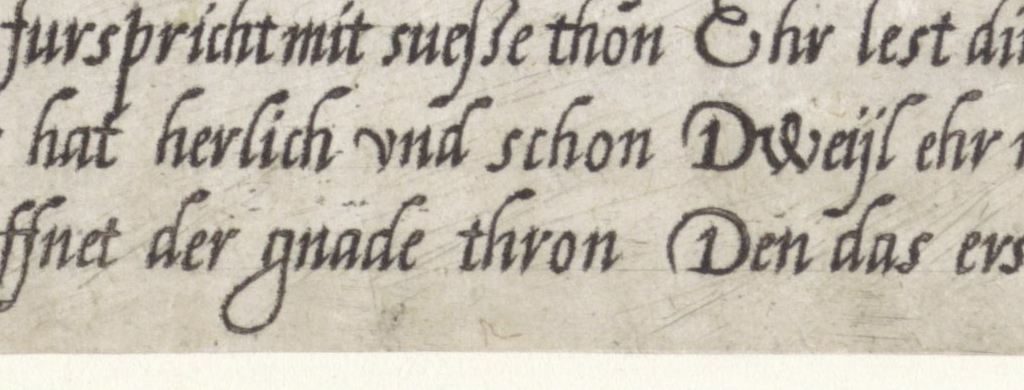 furspricht mit suesse thon Ehr lest di
hat herlich vnd schon Dweijl ehr
ffnet der gnade thron Den das ers